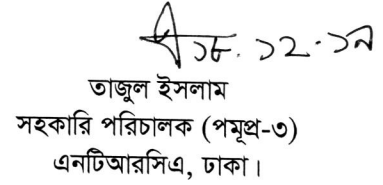 ১৮.১২.১৯
তাজুল ইসলাম
সহকারি পরিচালক (পমূপ্র-৩)
এনটিআরসিএ, ঢাকা।